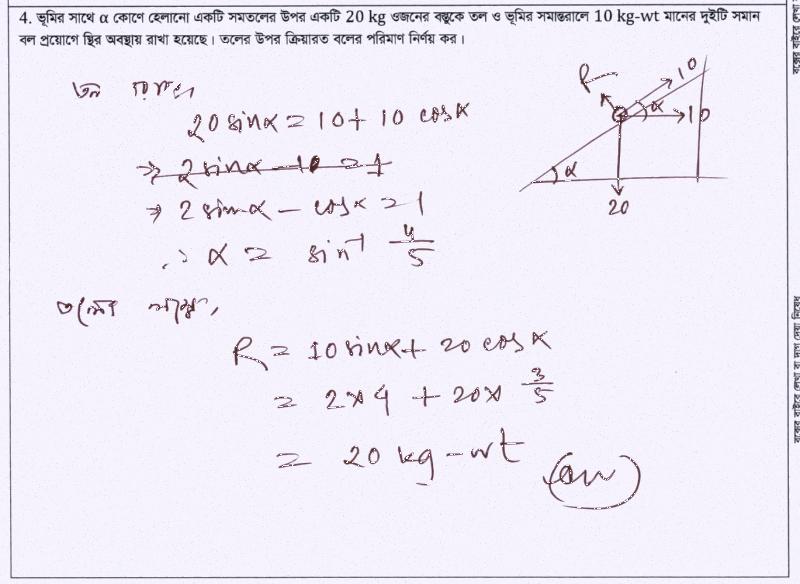 4. ভূমির সাথে α কোণে হেলানো একটি সমতলের উপর একটি 20 kg ওজনের বস্তুকে তল ও ভূমির সমান্তরালে 10 kg-wt মানের দুইটি সমান
বল প্রয়োগে স্থির অবস্থায় রাখা হয়েছে। তলের উপর ক্রিয়ারত বলের পরিমাণ নির্ণয় কর।
R 10
α 10
α
20
তল বরাবর,
20 sinα = 10 + 10 cosα
⇒ 2 sinα - 10 = 1
⇒ 2 sinα - cosα = 1
∴ α = sin⁻¹ 4/5
তলের লম্বে,
R = 10 sinα + 20 cosα
= 2×4 + 20× 3/5
= 20 kg-wt (Ans)